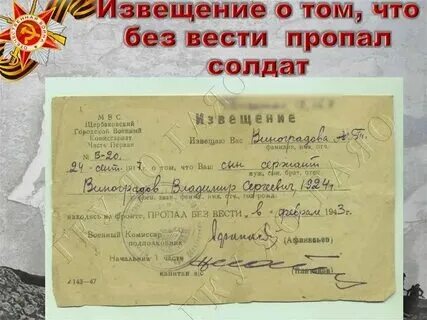 Извещение о том, что
без вести пропал
солдат
МВС
Щербаковский
Городской Военный
Комиссариат
Часть Первая
№ 5-20
24 - сент. 1947
Извещение
Извещаю Вас Виноградова А.П.
фамилия, имя, отч.
г. о том, что Ваш сын сержант
муж, сын, брат, отец
Виноградов Владимир Сергеевич 1924 г.
находясь на фронте, ПРОПАЛ БЕЗ ВЕСТИ. в феврале 1943 г.
Военный Комиссар
подполковник
(Афанасьев)
Начальник 1 части
капитан а/с
143—47